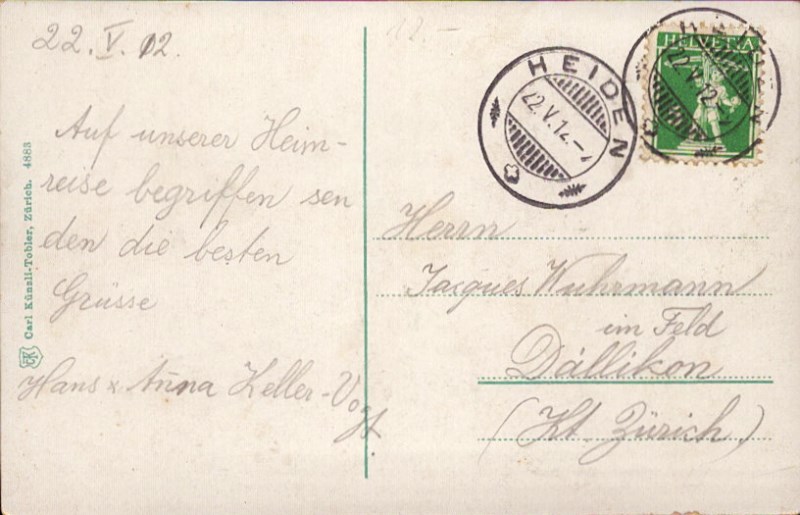 22. V. 12.
12.–
Auf unserer Heim-
reise begriffen sen
den die besten
Grüsse
Hans & Anna Keller-Vogt.
Carl Künzli-Tobler, Zürich. 4883
CKT
HEIDEN
22.V.12.–
HELVETIA
22.V.12
Herrn
Jacques Wuhrmann
im Feld
Dällikon
(Kt. Zürich)